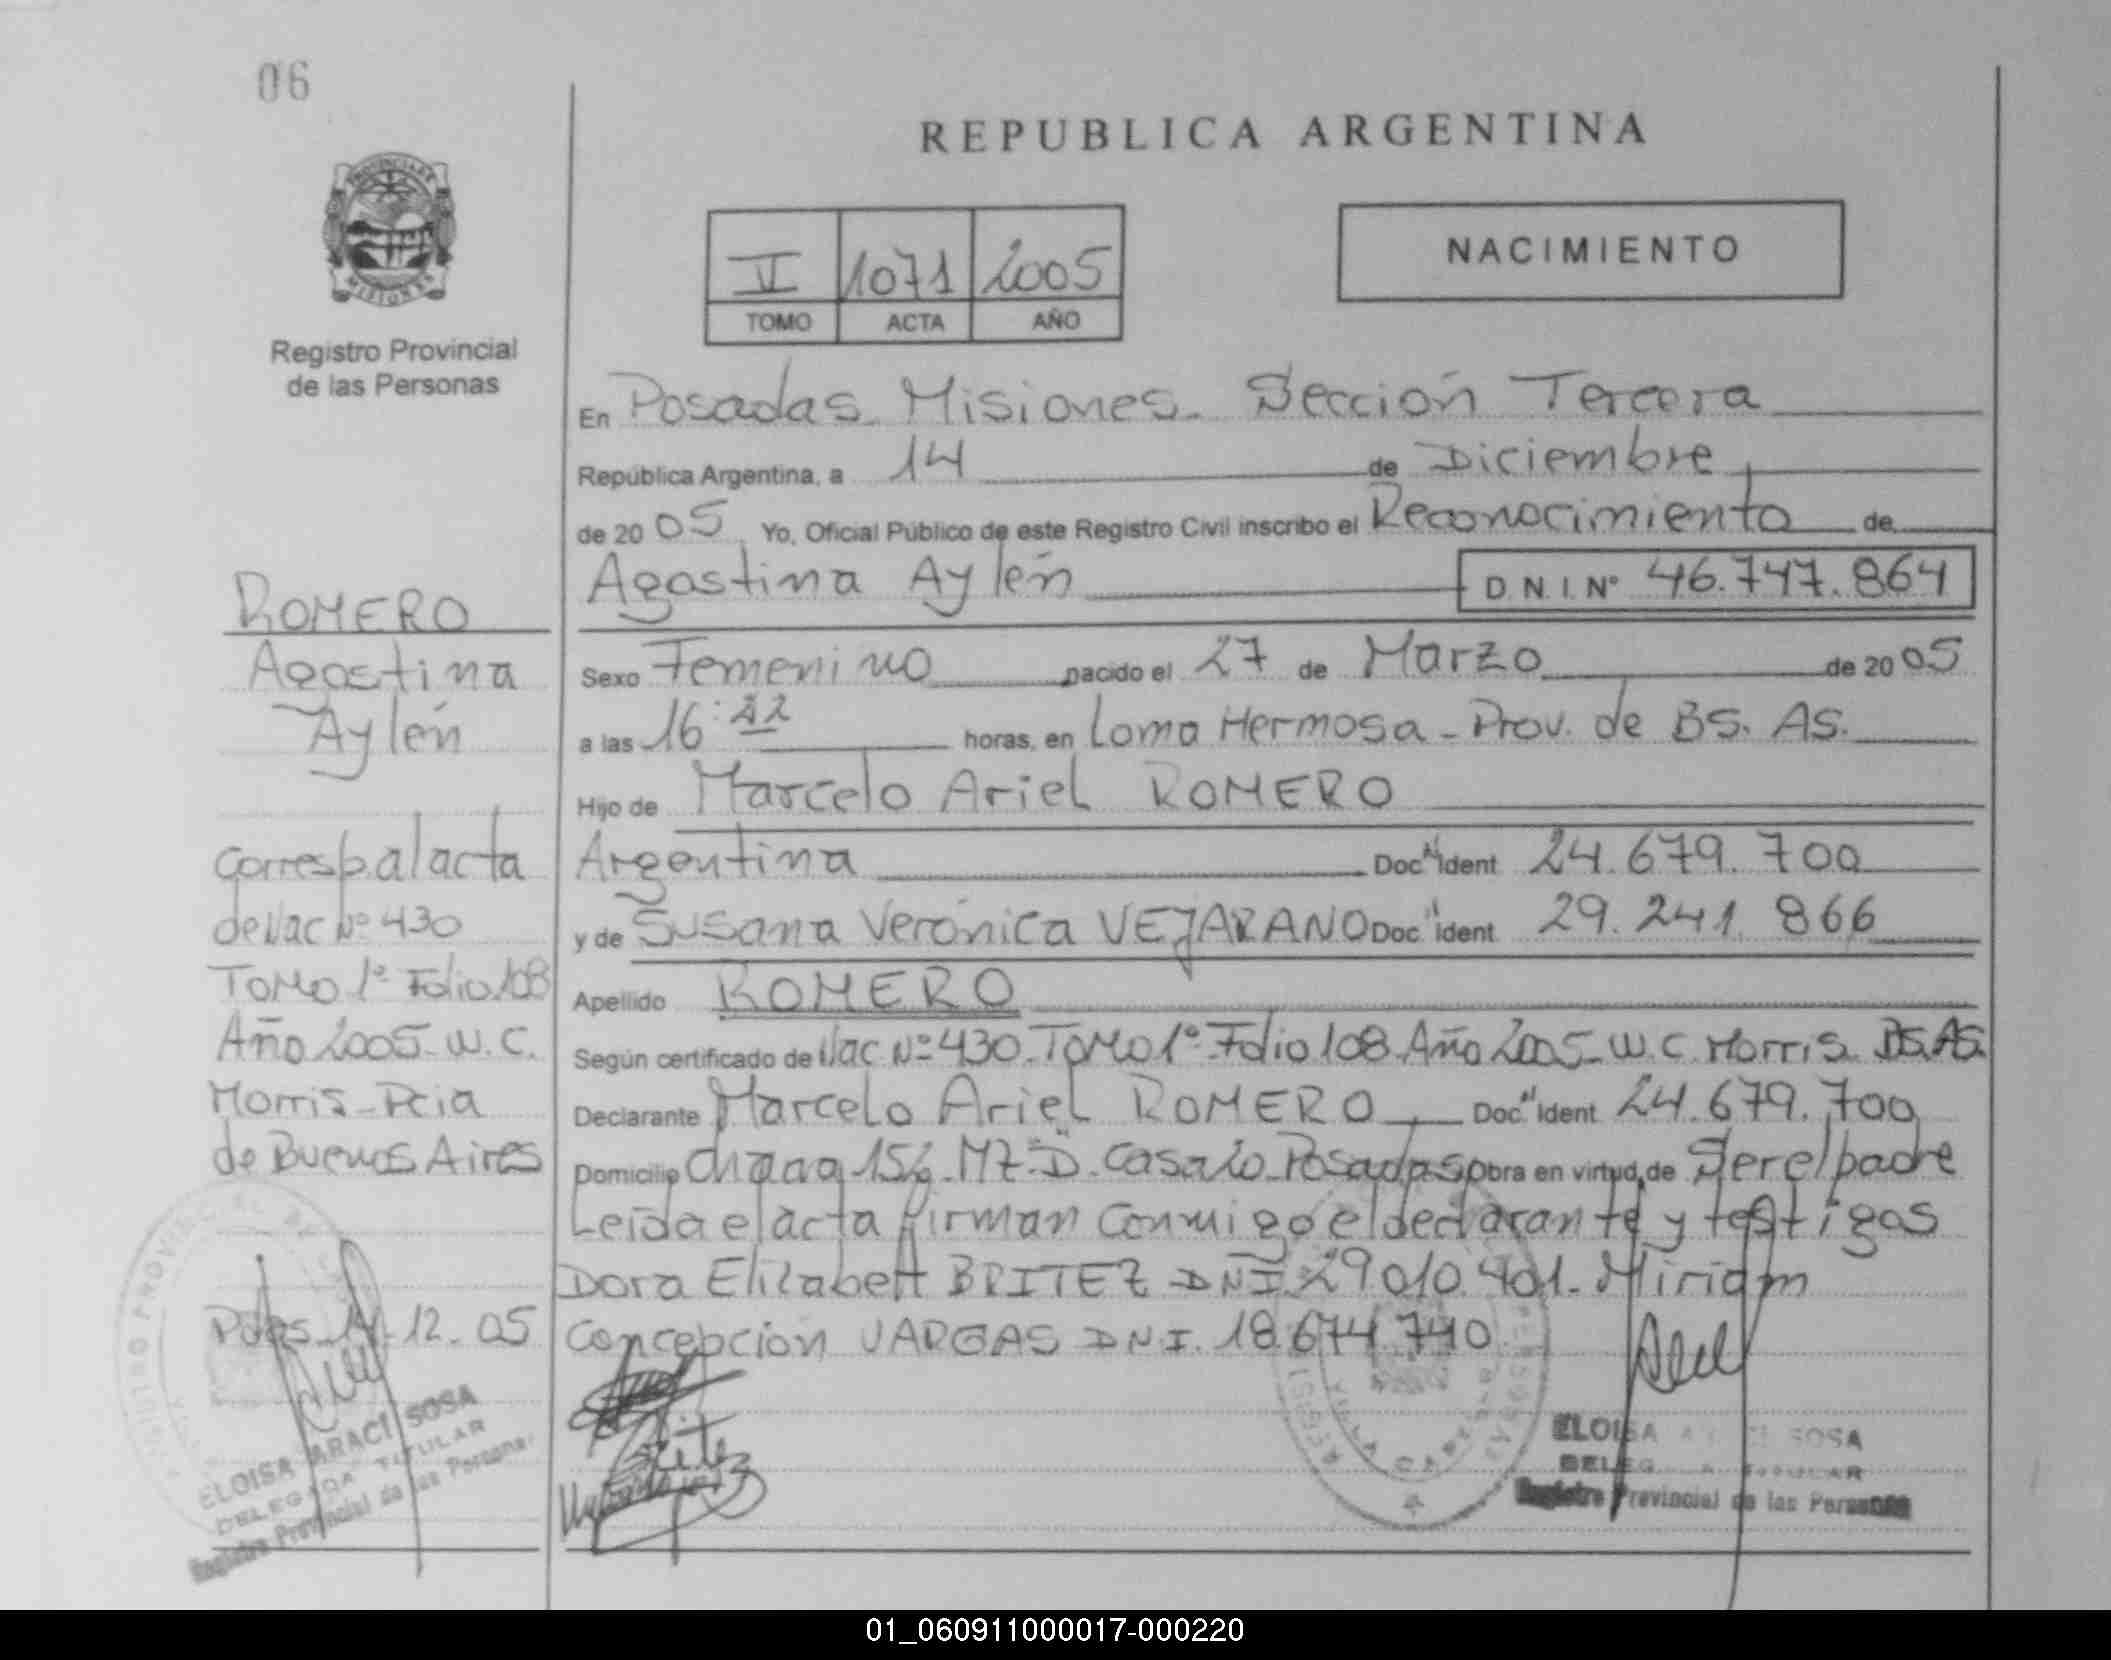 06
REPUBLICA ARGENTINA
PROVINCIA DE
MISIONES
Registro Provincial
de las Personas
1071 2005
TOMO ACTA AÑO
NACIMIENTO
En Posadas. Misiones. Sección Tercera
República Argentina, a 14 de Diciembre
de 20 05 Yo, Oficial Público de este Registro Civil inscribo el Reconocimiento de
Agostina Aylén D.N.I.Nº 46.747.864
Sexo Femenino nacido el 27 de Marzo de 20 05
a las 16: horas, en Loma Hermosa - Prov. de BS. AS.
Hijo de Marcelo Ariel ROMERO
Argentina Doc. Ident 24.679.700
y de Susana Verónica VEJARANO Doc. Ident 29.241.866
Apellido ROMERO
Según certificado de Nac Nº 430 - Tomo 1º Folio 108 Año 2005 - W.C. Morris. BS.AS.
Declarante Marcelo Ariel ROMERO Doc. Ident 24.679.700
Domicilio Mz. D. Casa Posadas Obra en virtud de Ser el padre
Leída el acta firman conmigo el declarante y testigos
Dora Elizabett BRITEZ DNI 29.010.401 - Miriam
Concepción VARGAS DNI. 18.674.740
ROMERO
Agostina
Aylén
Corresp. al acta
de Nac Nº 430
Tomo 1º Folio 108
Año 2005 - W.C.
Morris - Pcia
de Buenos Aires
Pdas 14-12-05
ELOISA ARACI SOSA
DELEGADA TITULAR
Registro Provincial de las Personas
ELOISA SOSA
TITULAR
Registro Provincial de las Personas
01_060911000017-000220